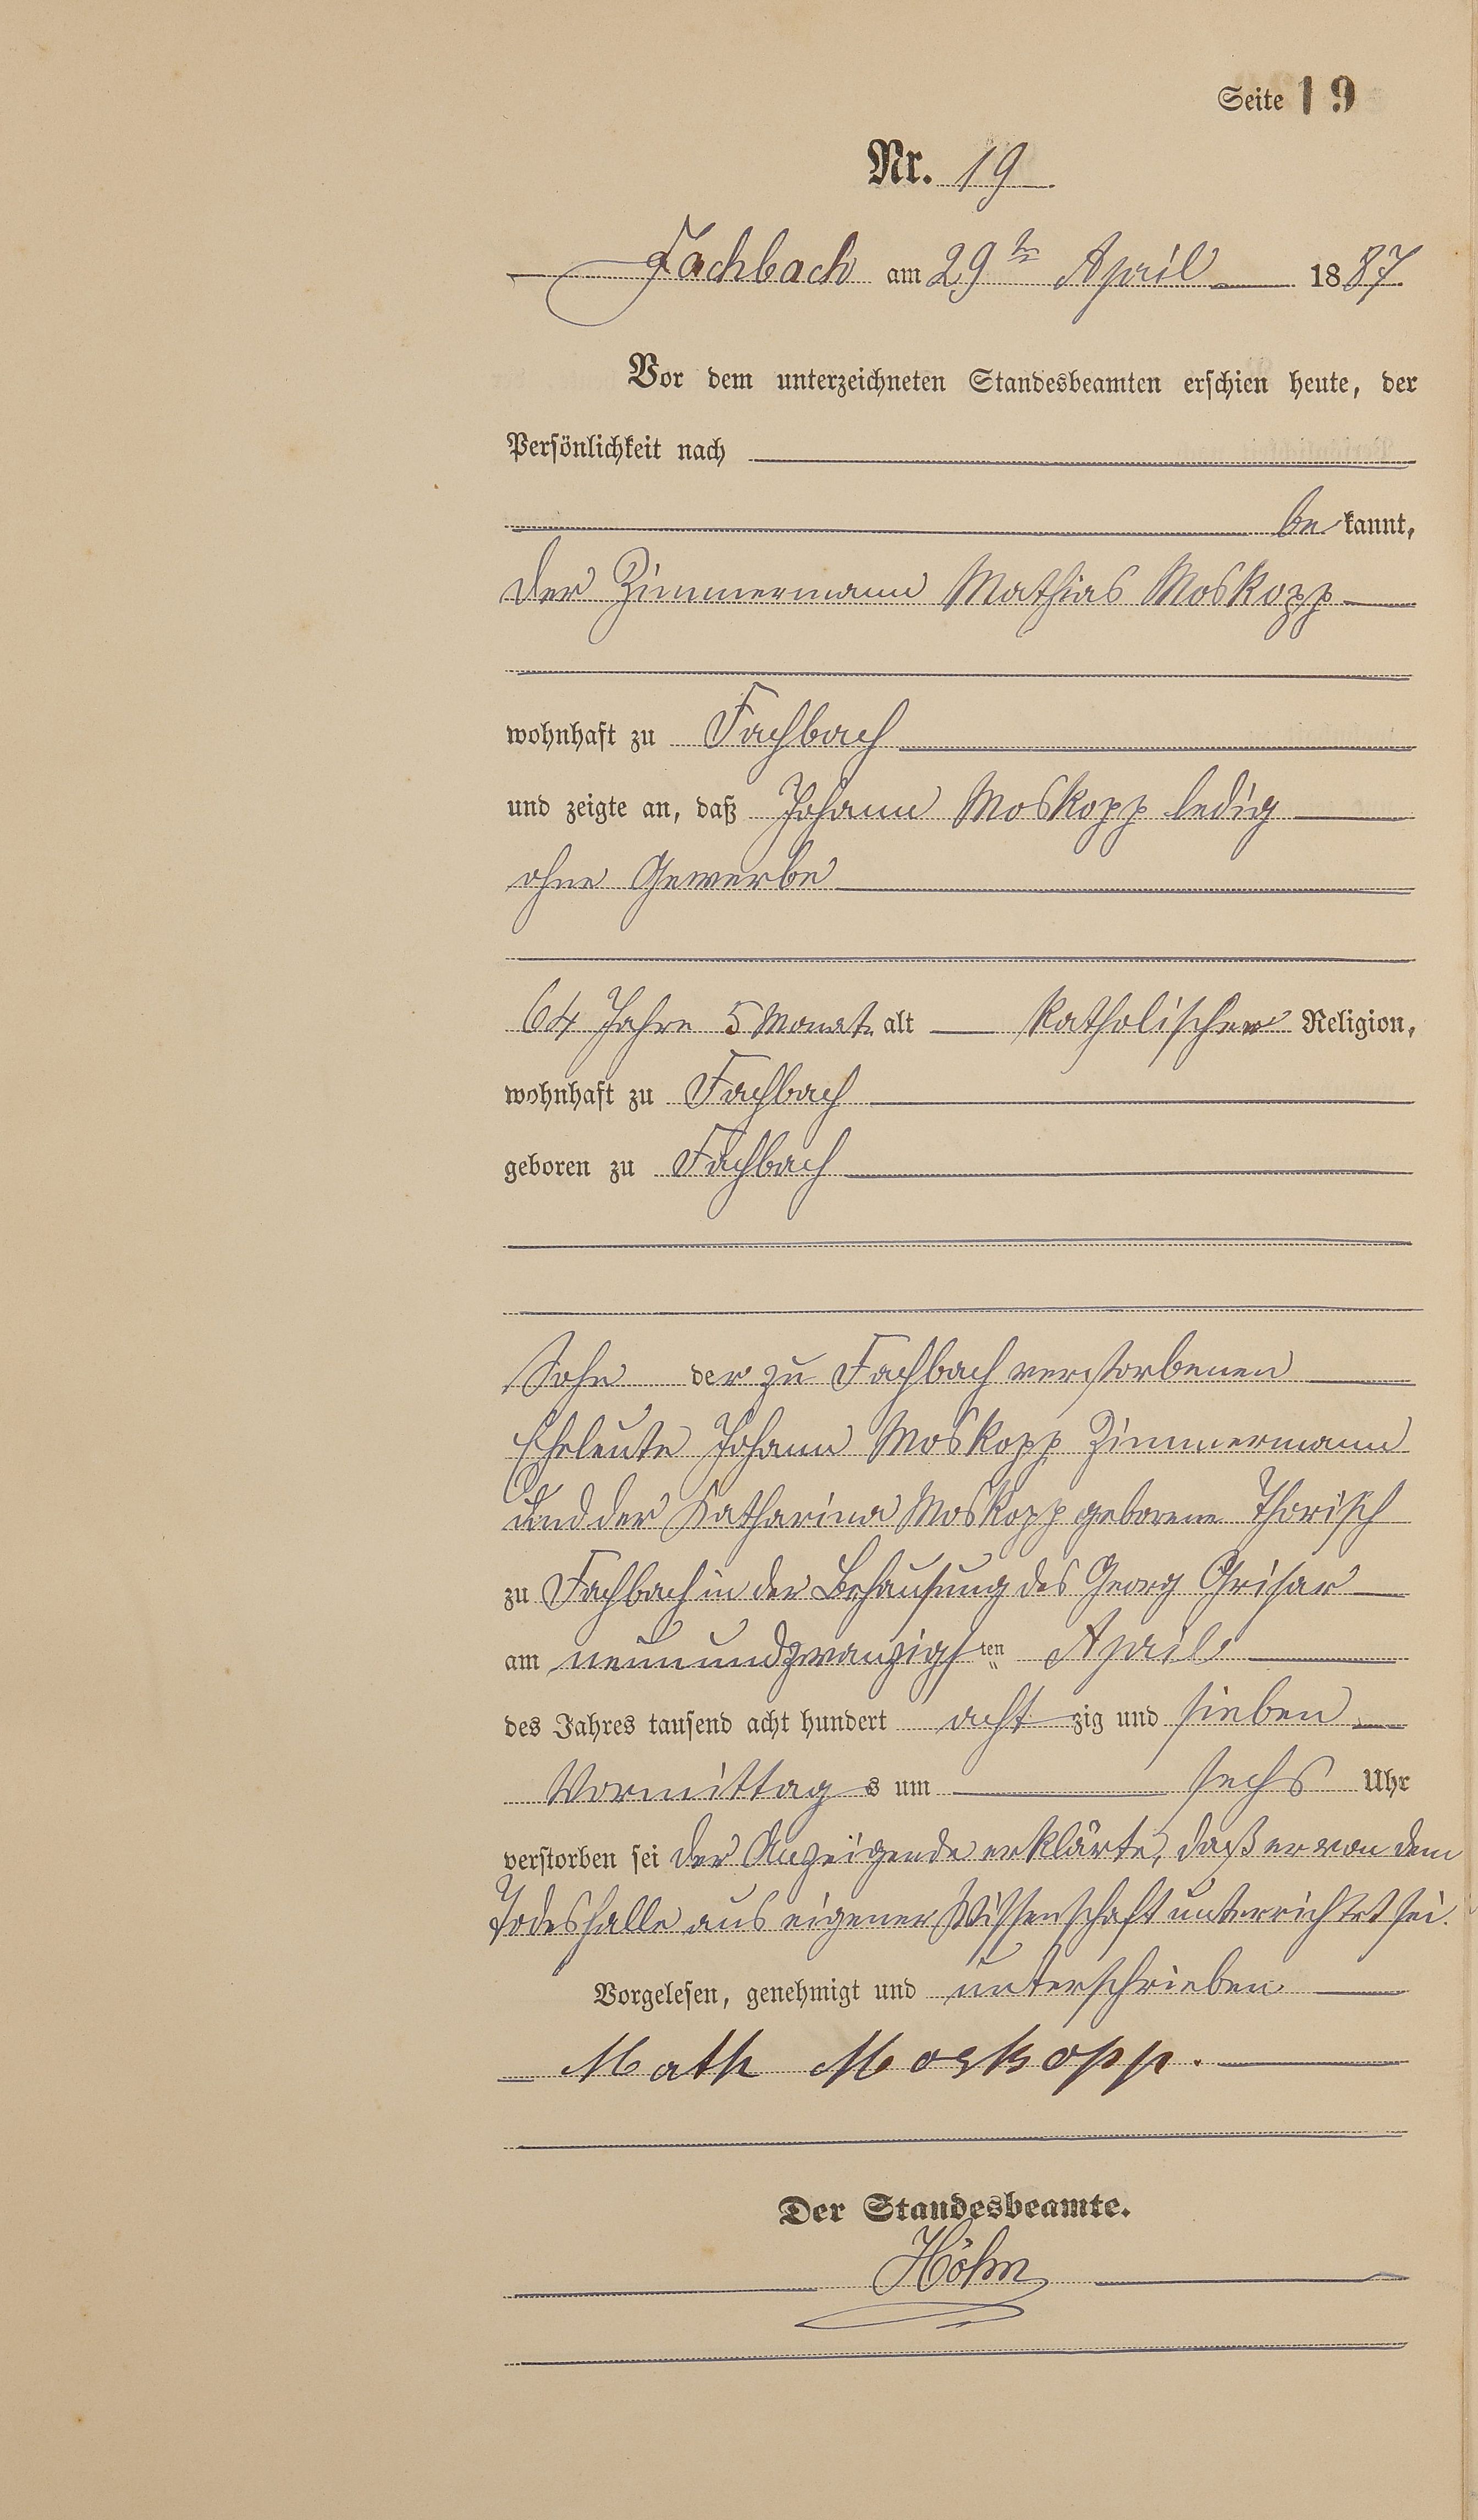 Seite 19
Nr. 19
Fachbach am 29ten April 1887.
Vor dem unterzeichneten Standesbeamten erschien heute, der
Persönlichkeit nach
be kannt,
der Zimmermann Mathias Moskopp
wohnhaft zu Fachbach
und zeigte an, daß Johann Moskopp ledig
ohne Gewerbe
64 Jahre 5 Monat alt katholischer Religion,
wohnhaft zu Fachbach
geboren zu Fachbach
Sohn der zu Fachbach verstorbenen
Eheleute Johann Moskopp Zimmermann
und der Katharina Moskopp geborene Thorisch
zu Fachbach in der Behausung des Georg Grisar
am neunundzwanzigsten April
des Jahres tausend acht hundert acht zig und sieben
Vormittag s um sechs Uhr
verstorben sei der Anzeigende erklärte, daß er von dem
Todesfalle aus eigener Wissenschaft unterrichtet sei.
Vorgelesen, genehmigt und unterschrieben
Math Moskopp.
Der Standesbeamte.
Höhn